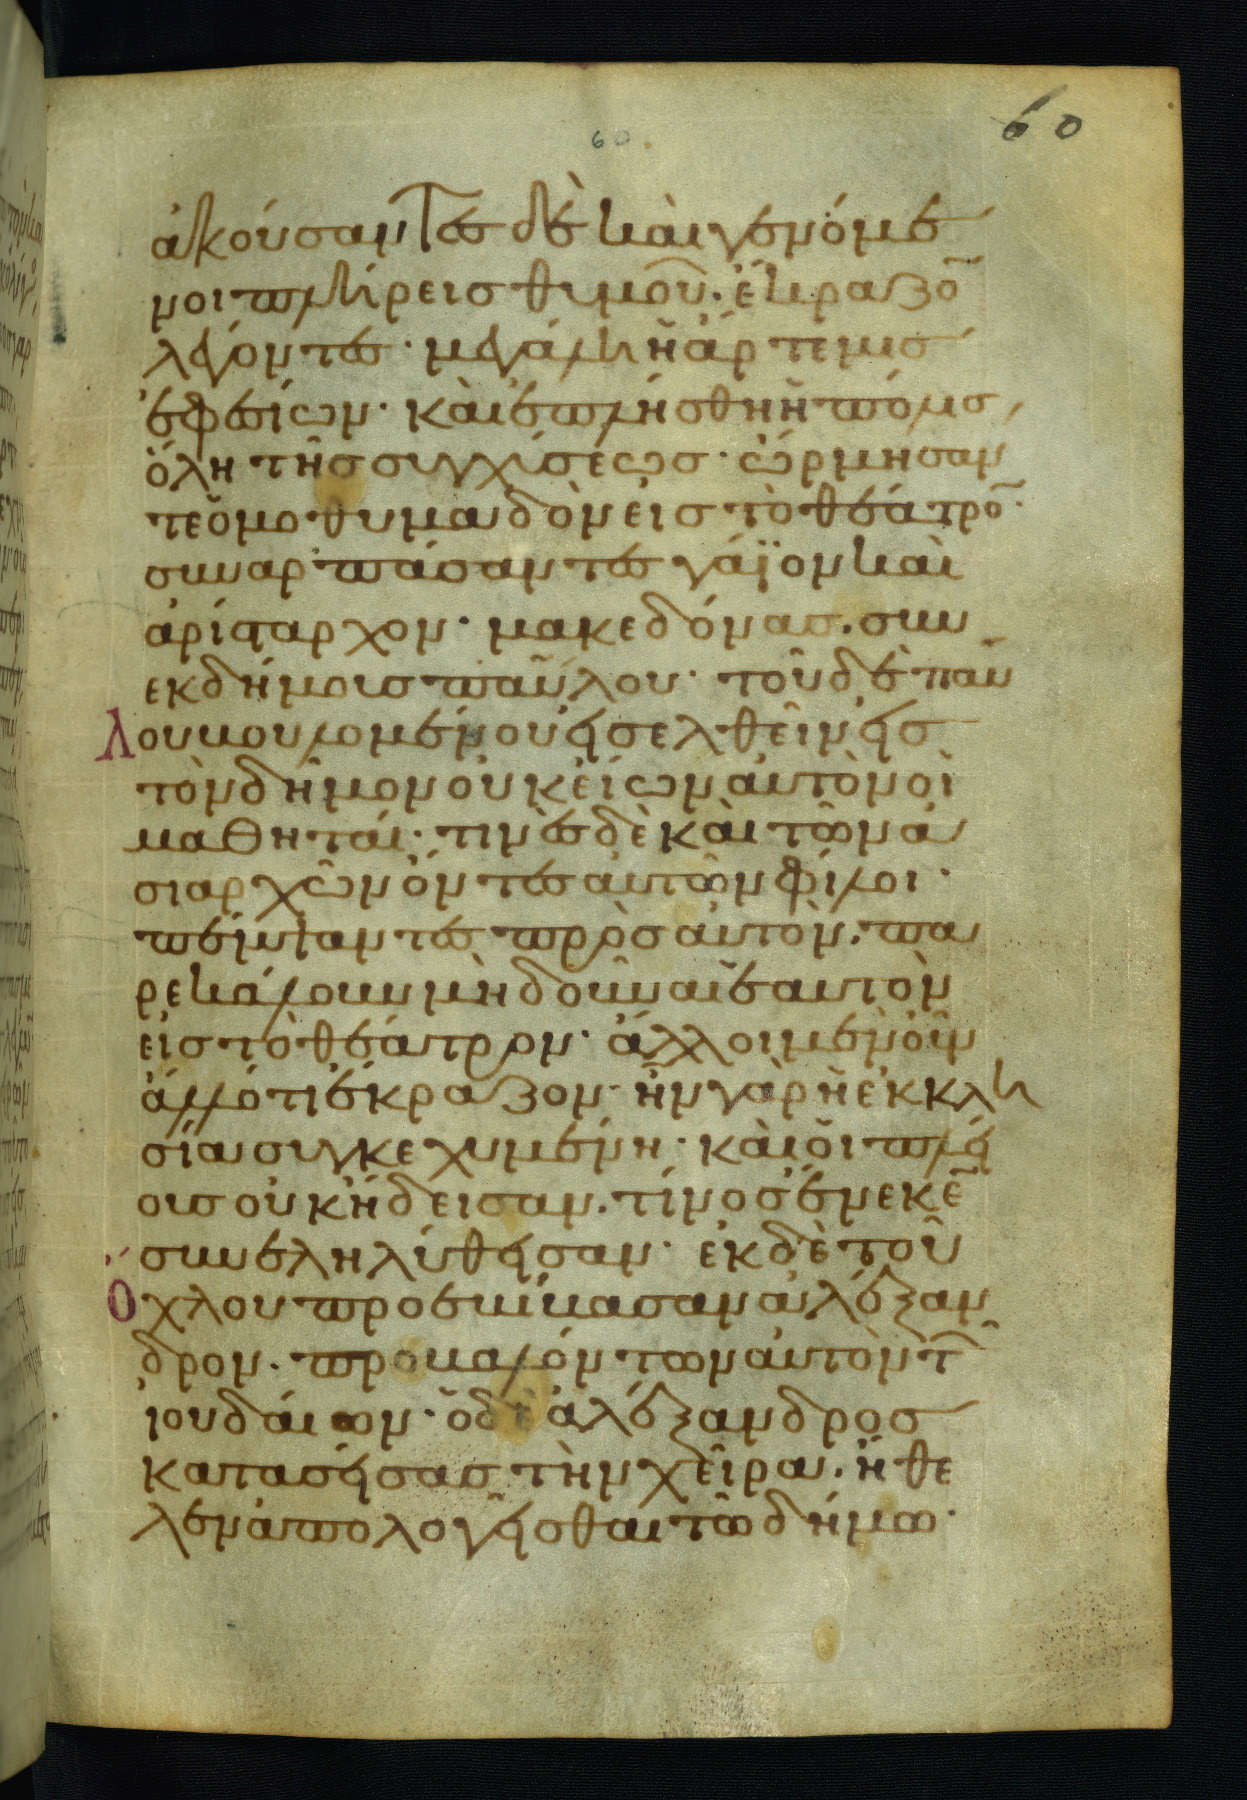 60
60
ἀκούσαντες δὲ καὶ γενόμε
νοι πλήρεις θυμοῦ· ἔκραζο̄
λέγοντες· μεγάλη ἡ ἄρτεμις
ἐφεσίων· καὶ ἐπλήσθη ἡ πόλις
ὅλη τῆς συγχύσεως· ὥρμησαν
τε ὁμοθυμαδὸν εἰς τὸ θέατρο̄·
συναρπάσαντες γάϊον καὶ
ἀρίσταρχον· μακεδόνας· συν
εκδήμους παύλου· τοῦ δὲ παύ
λου βουλομένου εἰσελθεῖν εἰς
τὸν δῆμον οὐκ εἴων αὐτὸν οἱ
μαθηταί· τινὲς δὲ καὶ τῶν ἀ
σιαρχῶν ὄντες αὐτῶν φίλοι·
πέμψαντες πρὸς αὐτὸν· πα
ρεκάλουν μὴ δοῦναι ἑαυτὸν
εἰς τὸ θέατρον· ἄλλοι μὲν οὖν
ἄλλό τι ἔκραζον· ἦν γὰρ ἡ ἐκκλη
σία συγκεχυμένη· καὶ οἱ πλεί
ους οὐκ ἤδεισαν· τίνος ἕνεκε̄
συνεληλύθεισαν· ἐκ δὲ τοῦ
ὄχλου προεβίβασαν ἀλέξαν
δρον· προβαλόντων αὐτὸν τ̑
ἰουδαίων· ὁ δὲ ἀλέξανδρος
κατασείσας τὴν χεῖρα· ἤθε
λεν ἀπολογεῖσθαι τῶ δήμω·